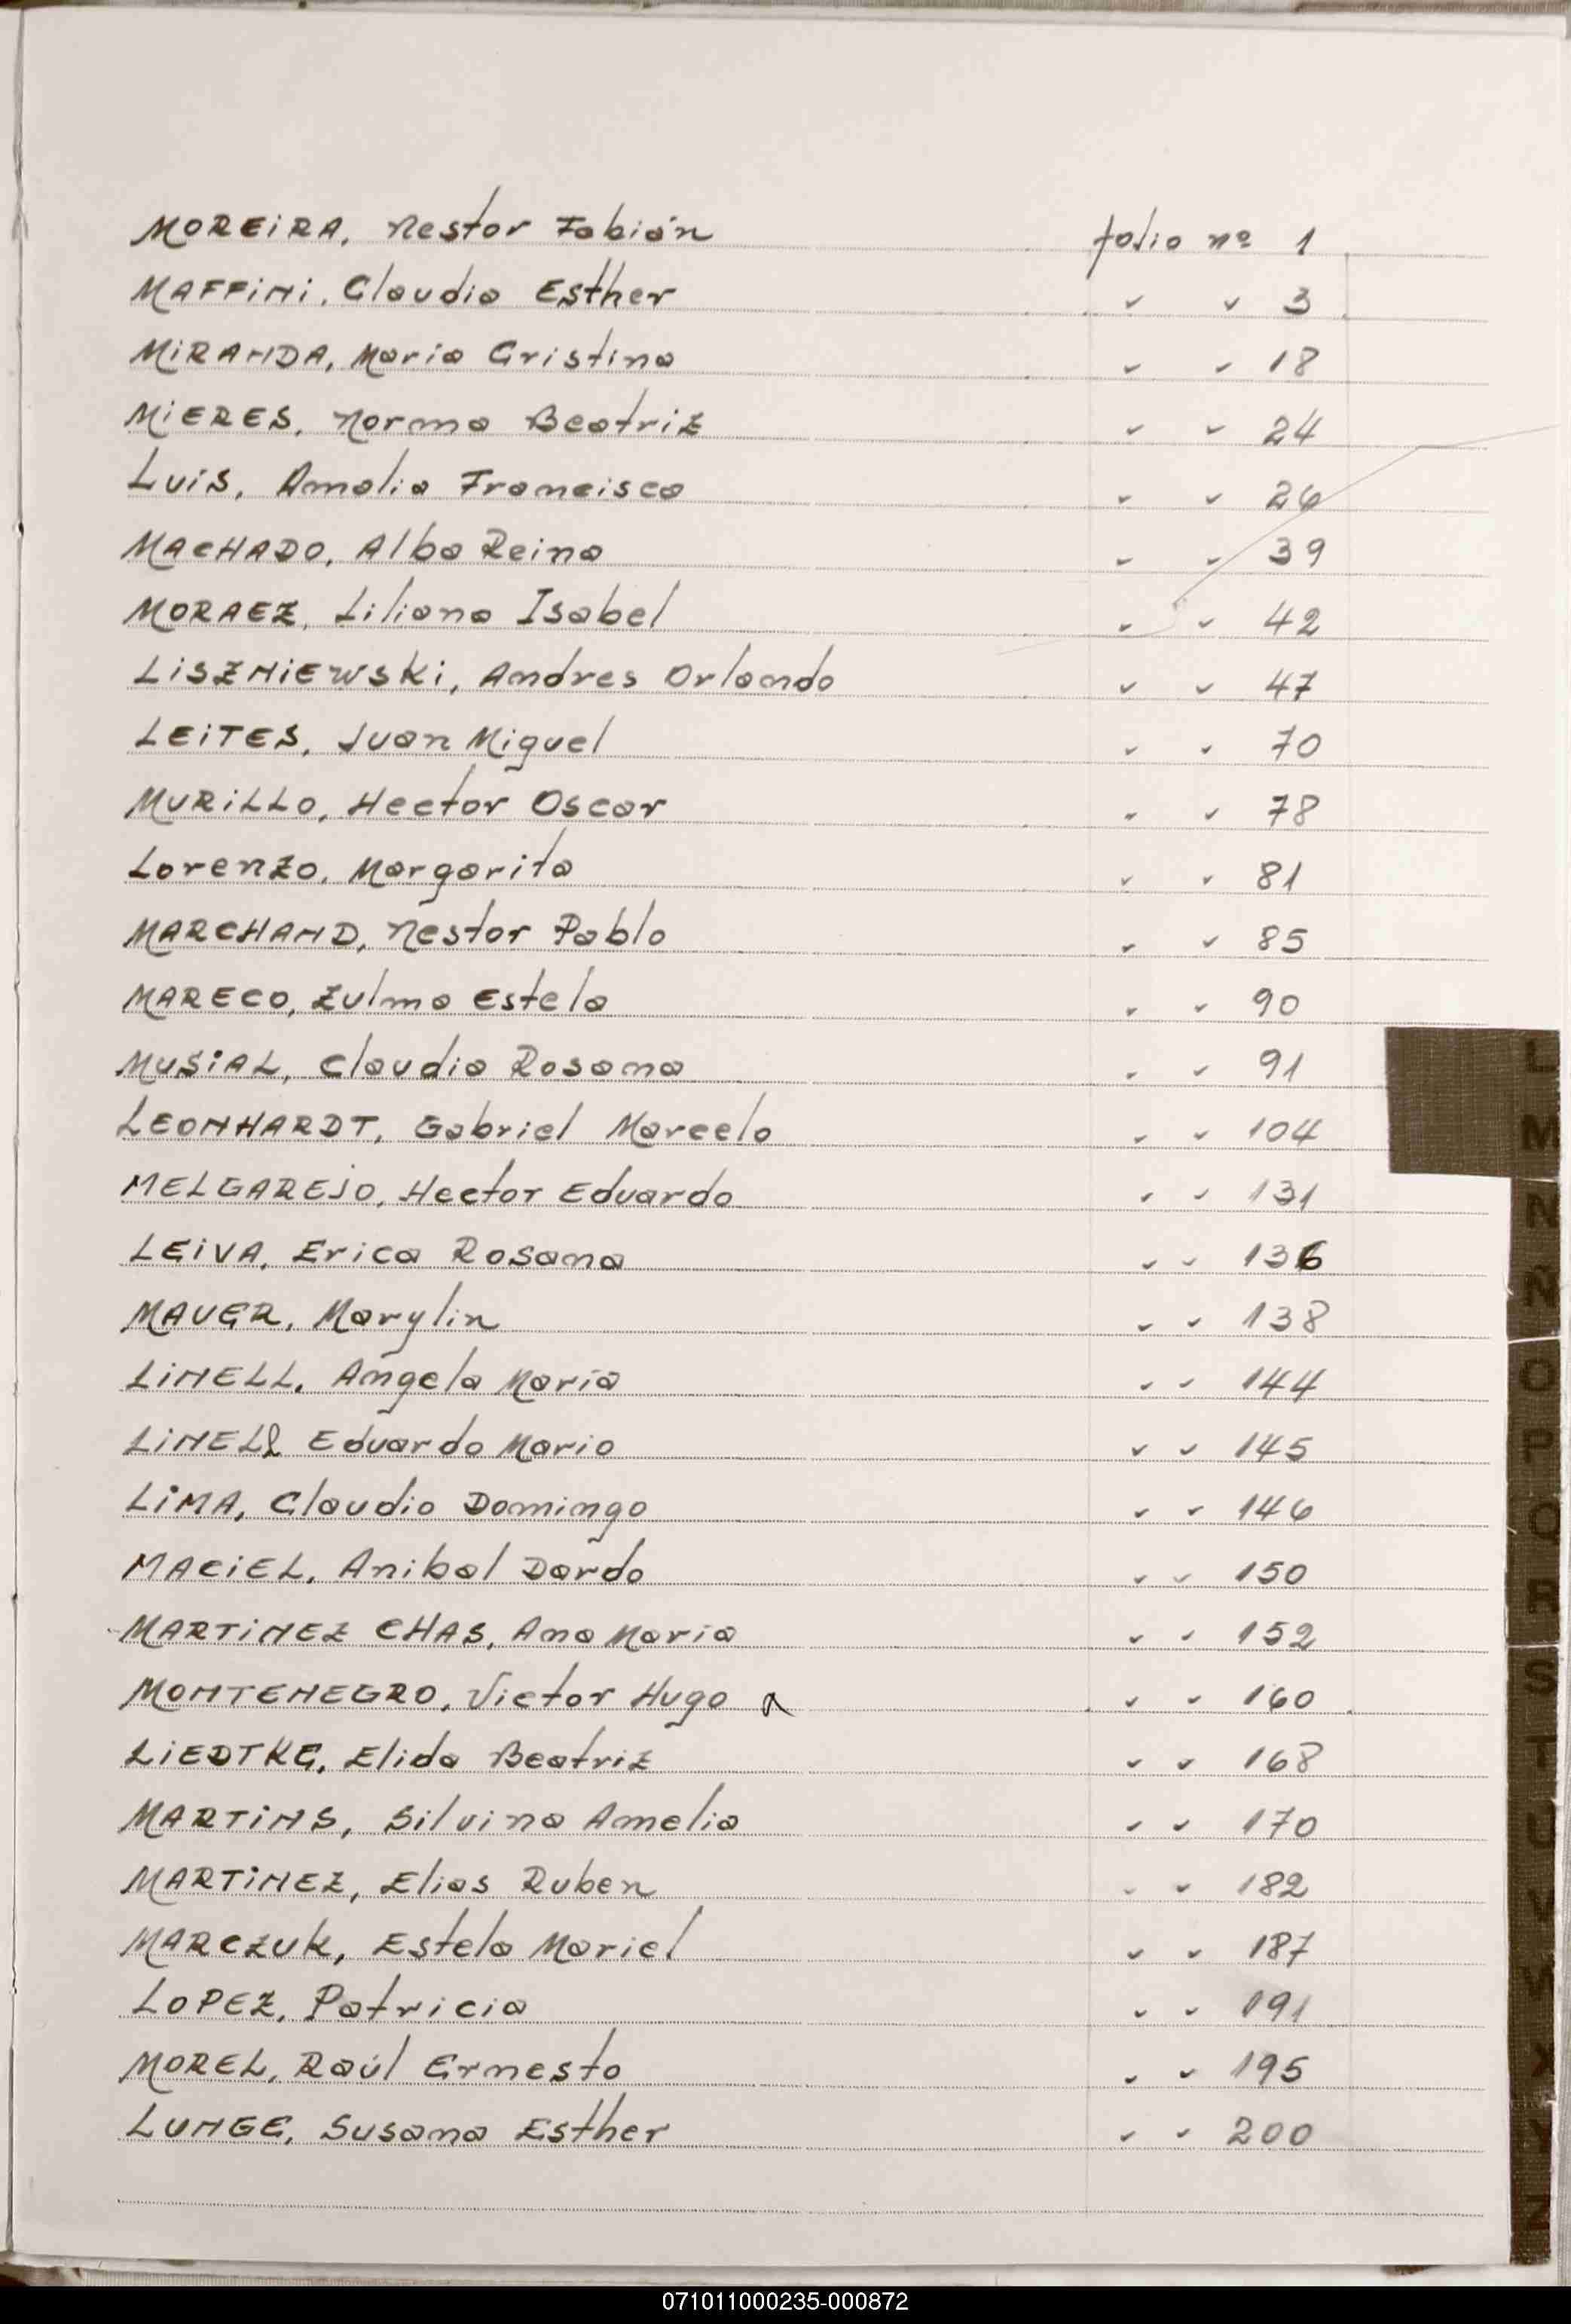 MOREiRA, Nestor Fabián folio nº 1
MAFFiNi, Claudia Esther " " 3
MiRANDA, Maria Cristina " " 18
MiERES, Norma Beatriz " " 24
Luis, Amalia Francisca " " 26
MACHADO, Alba Reina " " 39
MORAEZ, Liliana Isabel " " 42
LiSZNiEWSKi, Andres Orlando " " 47
LEiTES, Juan Miguel " " 70
MURiLLO, Hector Oscar " " 78
Lorenzo, Margarita " " 81
MARCHAND, Nestor Pablo " " 85
MARECO, Zulma Estela " " 90
MUSiAL, Claudia Rosana " " 91
LEONHARDT, Gabriel Marcelo " " 104
MELGAREJO, Hector Eduardo " " 131
LEiVA, Erica Rosana " " 136
MAUER, Marylin " " 138
LiNELL, Angela Maria " " 144
LiNELL Eduardo Mario " " 145
LiMA, Claudio Domingo " " 146
MACiEL, Anibal Dardo " " 150
MARTiNEZ CHAS, Ana Maria " " 152
MONTENEGRO, Victor Hugo " " 160
LiEDTKE, Elida Beatriz " " 168
MARTiNS, Silvina Amelia " " 170
MARTiNEZ, Elias Ruben " " 182
MARCZUK, Estela Mariel " " 187
LOPEZ, Patricia " " 191
MOREL, Raúl Ernesto " " 195
LUNGE, Susana Esther " " 200
L
M
N
Ñ
O
P
Q
R
S
T
U
V
W
X
Y
Z
071011000235-000872